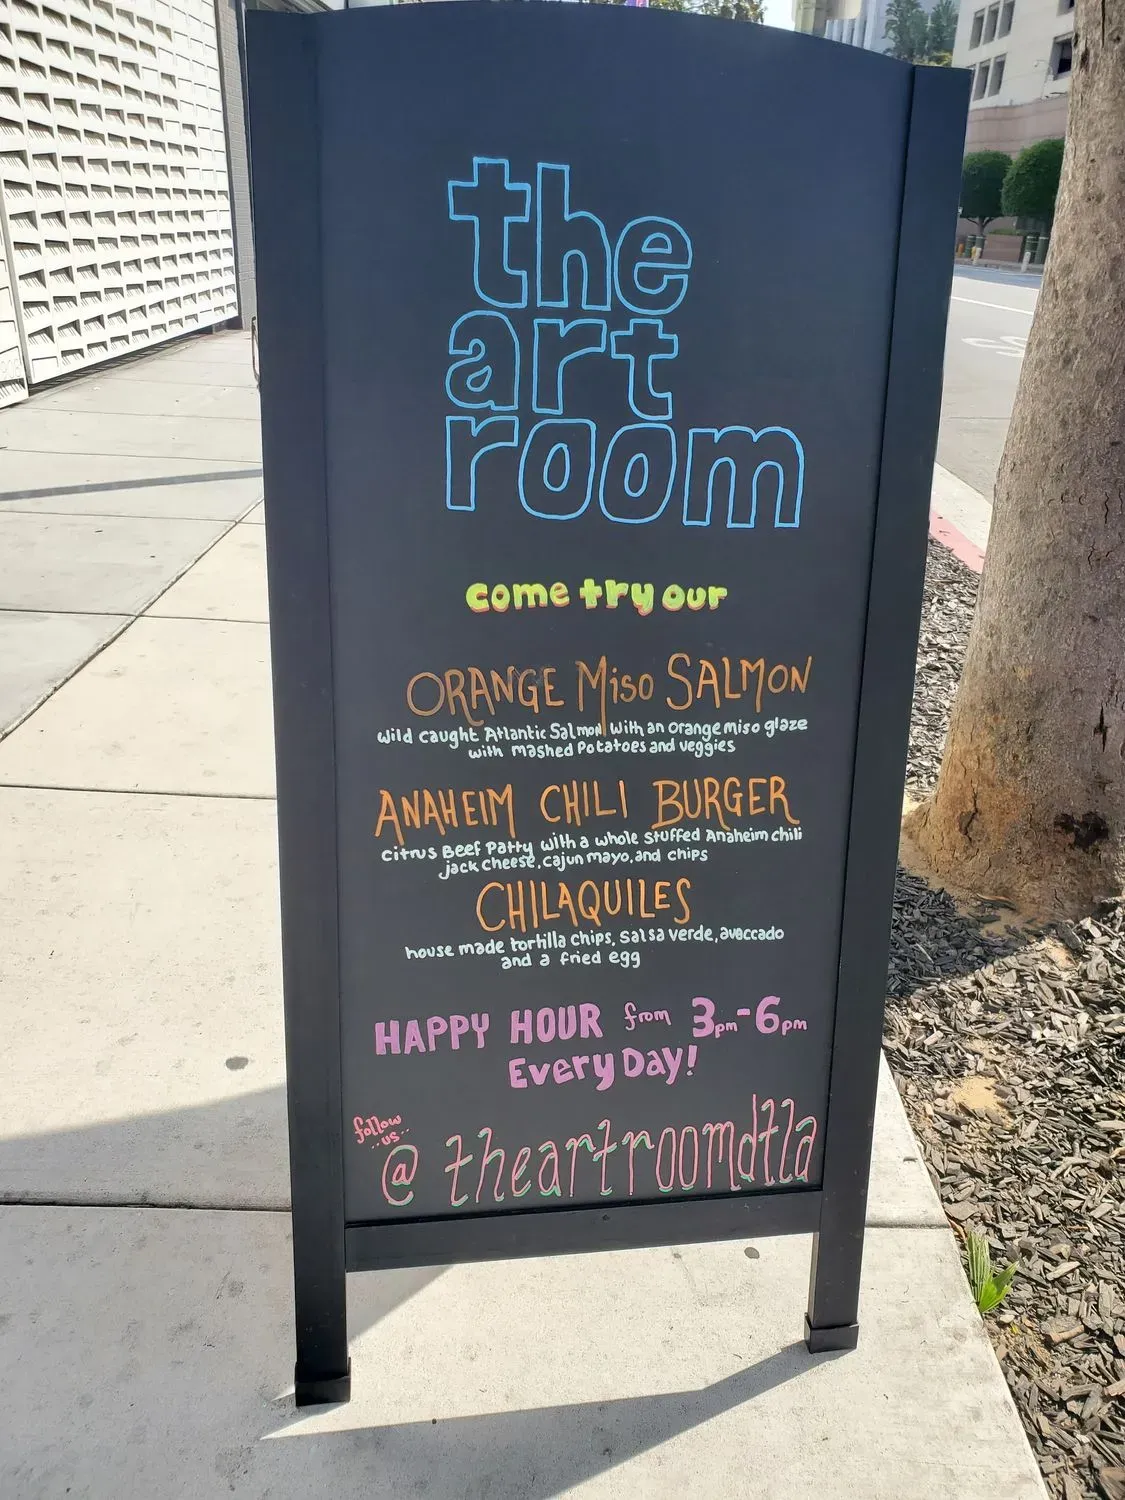 the
art
room
come try our
ORANGE Miso SALMON
wild caught Atlantic Salmon with an orange miso glaze
with mashed Potatoes and veggies
ANAHEIM CHILI BURGER
citrus Beef Patty with a whole stuffed Anaheim chili
jack cheese, cajun mayo, and chips
CHILAQUILES
house made tortilla chips, salsa verde, avaccado
and a fried egg
HAPPY HOUR from 3pm-6pm
Every Day!
follow
us
@theartroomdtla